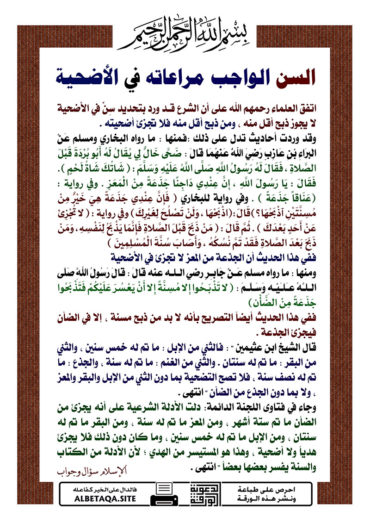 بسم الله الرحمن الرحيم
السن الواجب مراعاته في الأضحية
اتفق العلماء رحمهم الله على أن الشرع قد ورد بتحديد سنّ في الأضحية
لا يجوز ذبح أقل منه ، ومن ذبح أقل منه فلا تجزئ أضحيته .
وقد وردت أحاديث تدل على ذلك :فمنها : ما رواه البخاري ومسلم عنْ
البراءِ بْنِ عازبٍ رضيَ اللهُ عنهُما قالَ : ضَحَّى خَالٌ لِي يُقَالُ لَهُ أَبُو بُرْدَةَ قَبْلَ
الصَّلاةِ ، فَقَالَ لَهُ رَسُولُ اللهِ صَلَّى اللهُ عَلَيْهِ وَسَلَّمَ : ( شَاتُكَ شَاةُ لَحْمٍ ) .
فَقَالَ : يَا رَسُولَ اللهِ ، إِنَّ عِنْدِي دَاجِنًا جَذَعَةً مِنْ الْمَعَزِ . وفي رواية :
(عَنَاقًا جَذَعَةً ) . وفي رواية للبخاري ( فَإِنَّ عِنْدِي جَذَعَةً هِيَ خَيْرٌ مِنْ
مُسِنَّتَيْنِ آذْبَحُهَا؟)قَالَ:(اذْبَحْهَا ، وَلَنْ تَصْلُحَ لِغَيْرِكَ) وفي رواية : ( لا تُجْزِئُ
عَنْ أَحَدٍ بَعْدَكَ ) . ثُمَّ قَالَ : ( مَنْ ذَبَحَ قَبْلَ الصَّلاةِ فَإِنَّمَا يَذْبَحُ لِنَفْسِهِ ، وَمَنْ
ذَبَحَ بَعْدَ الصَّلاةِ فَقَدْ تَمَّ نُسُكُهُ ، وَأَصَابَ سُنَّةَ الْمُسْلِمِينَ )
ففي هذا الحديث أن الجذعة من المعز لا تجزئ في الأضحية
ومنها : ما رواه مسلم عن جابر رضي الله عنه قال : قال رَسُولُ اللهِ صَلَّى
اللهُ عَلَيْهِ وَسَلَّمَ : ( لا تَذْبَحُوا إِلا مُسِنَّةً إِلا أَنْ يَعْسُرَ عَلَيْكُمْ فَتَذْبَحُوا
جَذَعَةً مِنْ الضَّأْنِ)
ففي هذا الحديث أيضاً التصريح بأنه لا بد من ذبح مسنة ، إلا في الضأن
فيجزئ الجذعة .
قال الشيخ ابن عثيمين - : فالثني من الإبل : ما تم له خمس سنين ، والثني
من البقر : ما تم له سنتان . والثني من الغنم : ما تم له سنة ، والجذع : ما
تم له نصف سنة ، فلا تصح التضحية بما دون الثني من الإبل والبقر والمعز
، ولا بما دون الجذع من الضأن - انتهى .
وجاء في فتاوى اللجنة الدائمة: دلت الأدلة الشرعية على أنه يجزئ من
الضأن ما تم ستة أشهر ، ومن المعز ما تم له سنة ، ومن البقر ما تم له
سنتان ، ومن الإبل ما تم له خمس سنين ، وما كان دون ذلك فلا يجزئ
هدياً ولا أضحية ، وهذا هو المستيسر من الهدي ؛ لأن الأدلة من الكتاب
والسنة يفسر بعضها بعضاً - انتهى .
الإسلام سؤال وجواب
احرص على طباعة
ونشر هذه الورقة
فالدال على الخير كفاعله
ALBETAQA.SITE